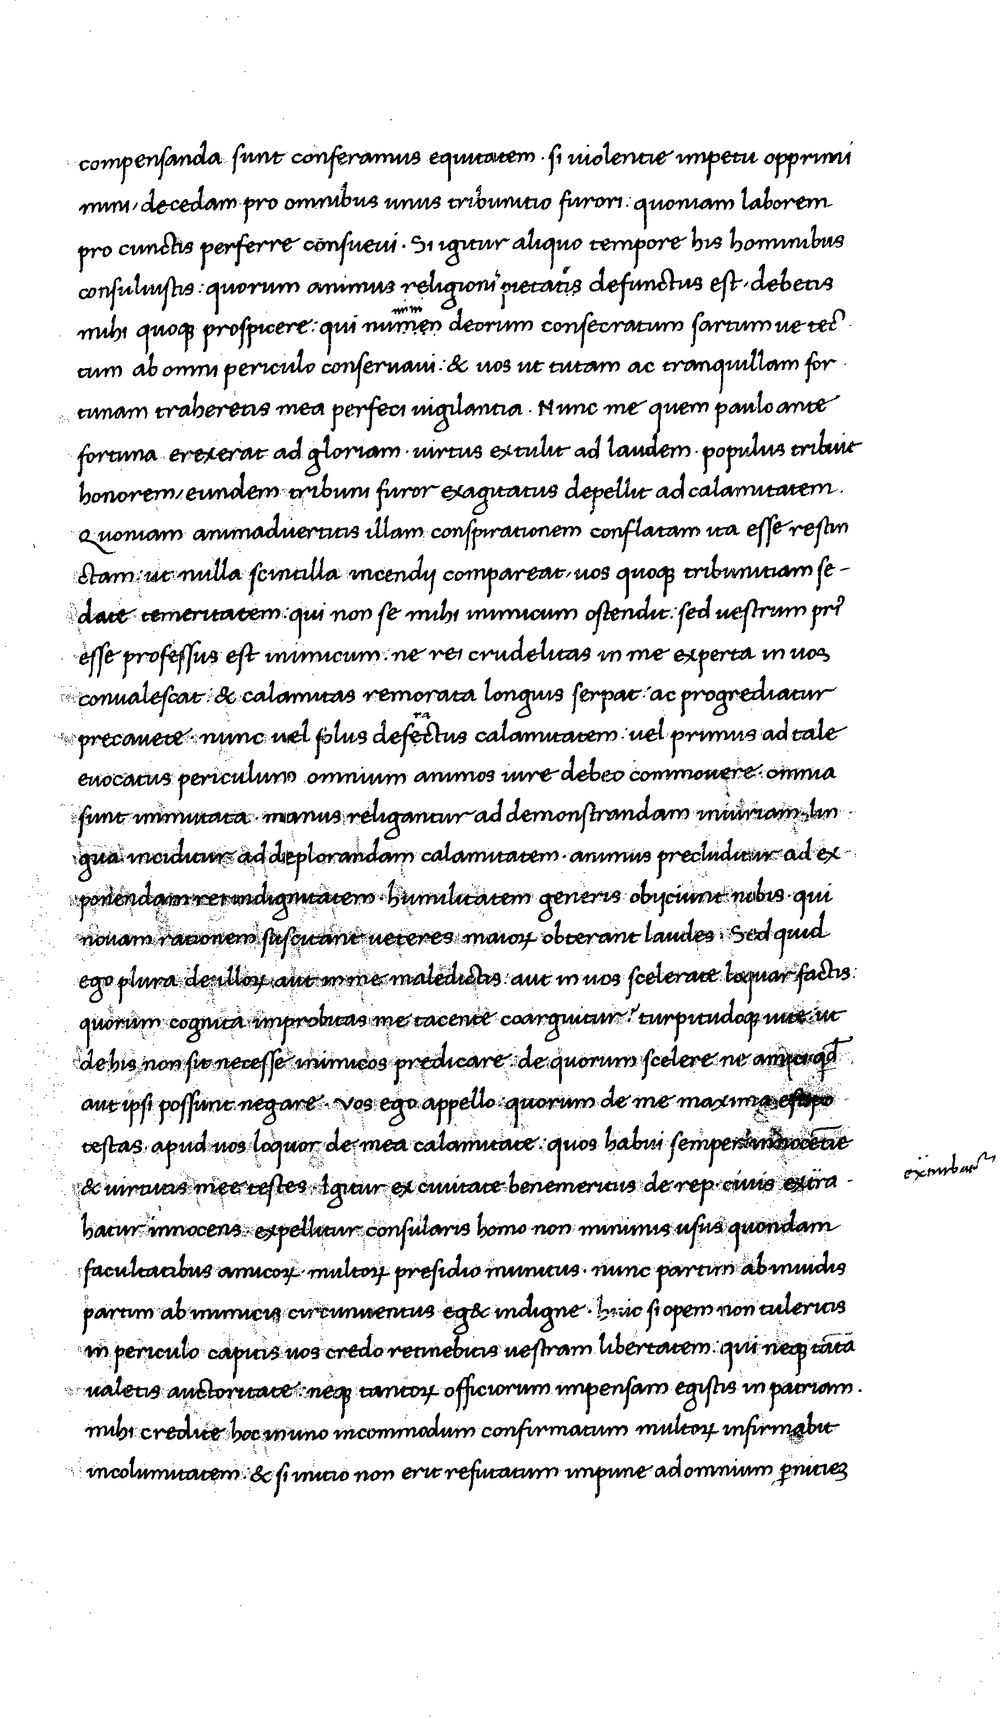 compensanda sunt conferamus equitatem · si uiolentie impetu opprimi
mini, decedam pro omnibus unus tribunitio furori: quoniam laborem
pro cunctis perferre cōnsueui · Si igitur aliquo tempore his hominibus
consuluistis: quorum animus religioni pietatis defunctus est, debetis
mihi quoqꝫ prospicere: qui numen deorum consecratum sartum ue tec
tum ab omni periculo conseruaui: & uos ut tutam ac tranquillam for
tunam traheretis mea perfeci uigilantia · Nunc me quem paulo ante
fortuna erexerat ad gloriam · uirtus extulit ad laudem · populus tribuit
honorem, eundem tribuni furor exagitatus depellit ad calamitatem.
Quoniam animaduertitis illam conspirationem conflatam ita esse restin
ctam: ut nulla scintilla incendij compareat, uos quoqꝫ tribunitiam se-
date temeritatem: qui non se mihi inimicum ostendit: sed uestrum pri
esse professus est inimicum: ne rei crudelitas in me experta in uos
conualescat: & calamitas remorata longius serpat: ac progrediatur
precauete · nunc uel solus defectus calamitatem: uel primus ad tale
euocatus periculum omnium animos iure debeo commouere · omnia
sunt immutata · manus religantur ad demonstrandam iniuriam, lin
gua inciditur ad deplorandam calamitatem · animus precluditur ad ex-
ponendam rei indignitatem · humilitatem generis obijciunt nobis · qui
nouam rationem suscitant ueteres maioꝝ obterant laudes · Sed quid
ego plura de illoꝝ aut in me maledictis aut in uos scelerate loquar factis:
quorum cognita improbitas me tacente coarguitur? turpitudoqꝫ uite: ut
de his non sit necesse inimicos predicare: de quorum scelere ne amici qd
aut ipsi possunt negare · Vos ego appello: quorum de me maxima est po
testas · apud uos loquor de mea calamitate: quos habui semper innocētie
& uirtutis mee testes · Igitur ex ciuitate benemeritus de rep · ciuis extra
exturbatur
hatur innocens · expellitur consularis homo non minimis usus quondam
facultatibus amicoꝝ · multoꝝ presidio munitus · nunc partim ab inuidis
partim ab inimicis circumuentus eg& indigne · huic si opem non tuleritis
in periculo capitis uos credo retinebitis uestram libertatem: qui neqꝫ tātā
ualetis auctoritate: neqꝫ tantoꝝ officiorum impensam egistis in patriam.
mihi credite hoc in uno incommodum confirmatum multoꝝ infirmabit
incolumitatem: & si initio non erit refutatum impune ad omnium ꝑnitiez